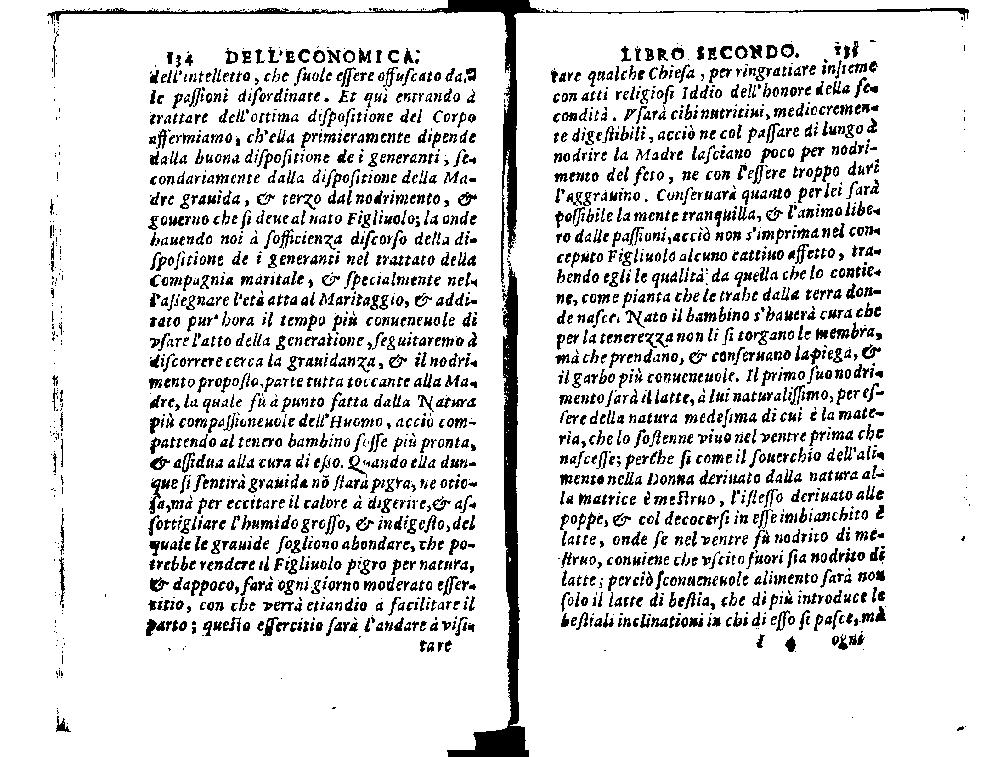 134 DELL'ECONOMICA.
dell'intelletto, che ſuole eſſere offuſcato dal
le paſſioni diſordinate. Et quì entrando à
trattare dell'ottima diſpoſitione del Corpo
affermiamo, ch'ella primieramente dipende
dalla buona diſpoſitione de i generanti, ſe-
condariamente dalla diſpoſitione della Ma-
dre grauida, & terzo dal nodrimento, &
gouerno che ſi deue al nato Figliuolo; la onde
hauendo noi à ſofficienza diſcorſo della di-
ſpoſitione de i generanti nel trattato della
Compagnia maritale, & ſpecialmente nel-
l'aſſegnare l'età atta al Maritaggio, & addi-
tato pur' hora il tempo più conueneuole di
vſare l'atto della generatione, ſeguitaremo à
diſcorrere cerca la grauidanza, & il nodri-
mento propoſto, parte tutta toccante alla Ma-
dre, la quale fù à punto fatta dalla Natura
più compaſſioneuole dell'Huomo, acciò com-
pattendo al tenero bambino foſſe più pronta,
& aſſidua alla cura di eſſo. Quando ella dun-
que ſi ſentirà grauida nõ ſtarà pigra, ne otio-
ſa, mà per eccitare il calore à digerire, & aſ-
ſottigliare l'humido groſſo, & indigeſto, del
quale le grauide ſogliono abondare, che po-
trebbe rendere il Figliuolo pigro per natura,
& dappoco, farà ogni giorno moderato eſſer-
titio, con che verrà etiandio a facilitare il
parto; queſto eſſercitio ſarà l'andare à viſi-
tare
LIBRO SECONDO. 135
tare qualche Chieſa, per ringratiare inſieme
con atti religioſi Iddio dell'honore della fe-
condità. Vſarà cibi nutritiui, mediocremen-
te digeſtibili, acciò ne col paſſare di lungo à
nodrire la Madre laſciano poco per nodri-
mento del feto, ne con l'eſſere troppo duri
l'aggrauino. Conſeruarà quanto per lei ſarà
poſſibile la mente tranquilla, & l'animo libe-
ro dalle paſſioni, acciò non s'imprima nel con-
ceputo Figliuolo alcuno cattiuo affetto, tra-
hendo egli le qualità da quella che lo contie-
ne, come pianta che le trahe dalla terra don-
de naſce. Nato il bambino s'hauerà cura che
per la tenerezza non li ſi torgano le membra,
mà che prendano, & conſeruano la piega, &
il garbo più conueneuole. Il primo ſuo nodri-
mento ſarà il latte, à lui naturaliſſimo, per eſ-
ſere della natura medeſima di cui è la mate-
ria, che lo ſoſtenne viuo nel ventre prima che
naſceſſe; perche ſi come il ſouerchio dell'ali-
mento nella Donna deriuato dalla natura al-
la matrice è meſtruo, l'iſteſſo deriuato alle
poppe, & col decocerſi in eſſe imbianchito è
latte, onde ſe nel ventre fù nodrito di me-
ſtruo, conuiene che vſcito fuori ſia nodrito di
latte; perciò ſconueneuole alimento ſarà non
ſolo il latte di beſtia, che di più introduce le
beſtiali inclinationi in chi di eſſo ſi paſce, mà
I 4 ogni